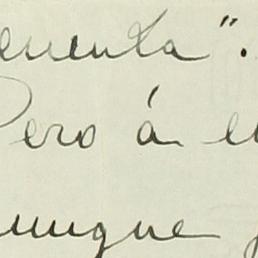 cuenta".
Pero á e
unque